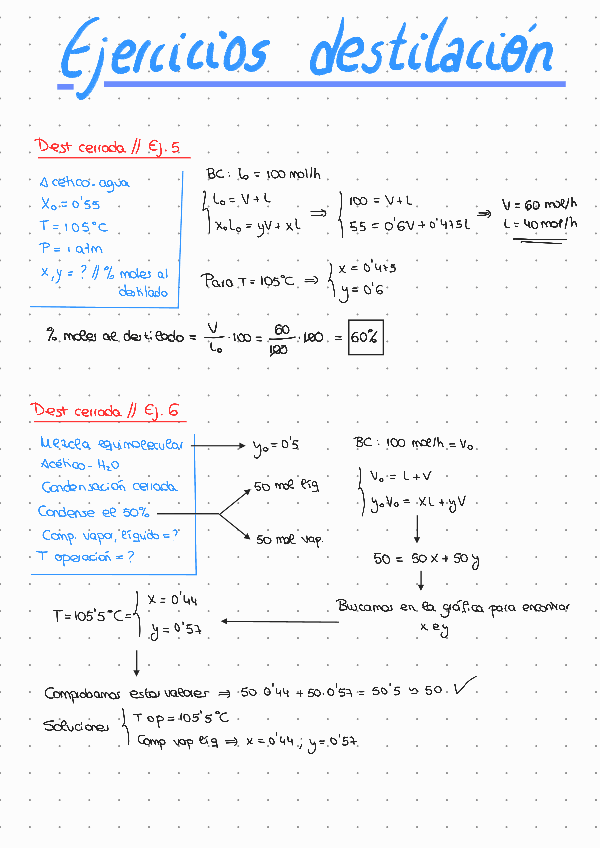 Ejercicios destilación
Dest cerrada // Ej. 5
Acético-agua
X₀ = 0'55
T = 105°C
P = 1 atm
x, y = ? // % moles al
destilado
BC: L₀ = 100 mol/h
L₀ = V + L
x₀L₀ = yV + xL
⇒
100 = V + L
55 = 0'6V + 0'475L
⇒
V = 60 mol/h
L = 40 mol/h
Para T = 105°C ⇒
x = 0'475
y = 0'6
% moles al destilado = V/L₀ · 100 = 60/100 · 100 = 60%
Dest cerrada // Ej. 6
Mezcla equimolecular → y₀ = 0'5
Acético - H₂O
Condensación cerrada
Condense el 50%
50 mol líq
50 mol vap.
Comp. vapo, líquido = ?
T operación = ?
BC: 100 mol/h = V₀
V₀ = L + V
y₀V₀ = xL + yV
50 = 50x + 50y
Buscamos en la gráfica para encontrar
x e y
T = 105'5°C =
x = 0'44
y = 0'57
Comprobamos estos valores ⇒ 50·0'44 + 50·0'57 = 50'5 ∽ 50. ✓
Soluciones
T op = 105'5°C
Comp vap líq ⇒ x = 0'44; y = 0'57